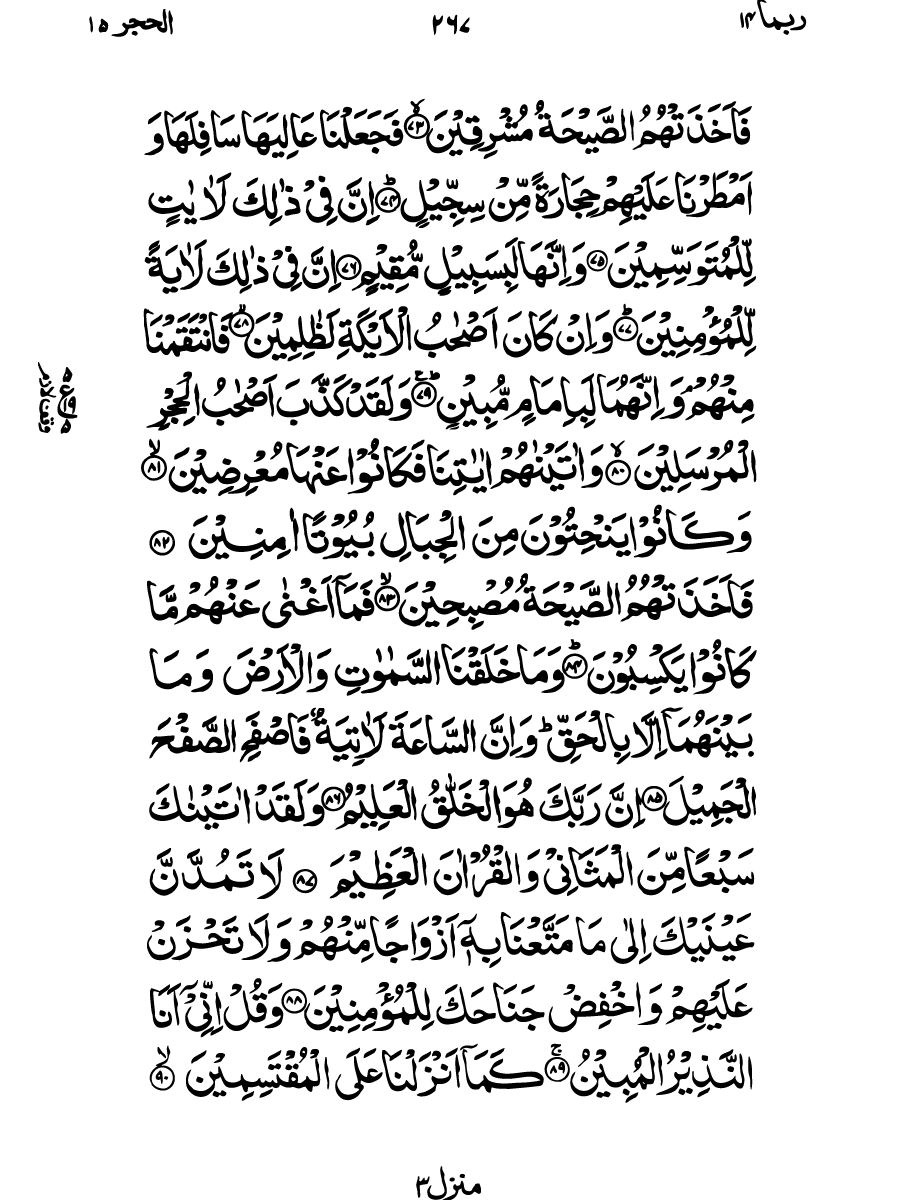 ربما ۱۴ ۲۶۷ الحجر ۱۵
فَاَخَذَتْهُمُ الصَّيْحَةُ مُشْرِقِيْنَ ۙ﴿۷۳﴾ فَجَعَلْنَا عَالِيَهَا سَافِلَهَا وَ
اَمْطَرْنَا عَلَيْهِمْ حِجَارَةً مِّنْ سِجِّيْلٍ ؕ﴿۷۴﴾ اِنَّ فِيْ ذٰلِكَ لَاٰيٰتٍ
لِّلْمُتَوَسِّمِيْنَ ﴿۷۵﴾ وَاِنَّهَا لَبِسَبِيْلٍ مُّقِيْمٍ ﴿۷۶﴾ اِنَّ فِيْ ذٰلِكَ لَاٰيَةً
لِّلْمُؤْمِنِيْنَ ؕ﴿۷۷﴾ وَاِنْ كَانَ اَصْحٰبُ الْاَيْكَةِ لَظٰلِمِيْنَ ۙ﴿۷۸﴾ فَانْتَقَمْنَا
مِنْهُمْ ۘ وَاِنَّهُمَا لَبِاِمَامٍ مُّبِيْنٍ ؕ﴿۷۹﴾ وَلَقَدْ كَذَّبَ اَصْحٰبُ الْحِجْرِ
الْمُرْسَلِيْنَ ۙ﴿۸۰﴾ وَاٰتَيْنٰهُمْ اٰيٰتِنَا فَكَانُوْا عَنْهَا مُعْرِضِيْنَ ۙ﴿۸۱﴾
وَكَانُوْا يَنْحِتُوْنَ مِنَ الْجِبَالِ بُيُوْتًا اٰمِنِيْنَ ﴿۸۲﴾
فَاَخَذَتْهُمُ الصَّيْحَةُ مُصْبِحِيْنَ ۙ﴿۸۳﴾ فَمَاۤ اَغْنٰى عَنْهُمْ مَّا
كَانُوْا يَكْسِبُوْنَ ؕ﴿۸۴﴾ وَمَا خَلَقْنَا السَّمٰوٰتِ وَالْاَرْضَ وَمَا
بَيْنَهُمَاۤ اِلَّا بِالْحَقِّ ؕ وَاِنَّ السَّاعَةَ لَاٰتِيَةٌ فَاصْفَحِ الصَّفْحَ
الْجَمِيْلَ ﴿۸۵﴾ اِنَّ رَبَّكَ هُوَ الْخَلّٰقُ الْعَلِيْمُ ﴿۸۶﴾ وَلَقَدْ اٰتَيْنٰكَ
سَبْعًا مِّنَ الْمَثَانِيْ وَالْقُرْاٰنَ الْعَظِيْمَ ﴿۸۷﴾ لَا تَمُدَّنَّ
عَيْنَيْكَ اِلٰى مَا مَتَّعْنَا بِهٖۤ اَزْوَاجًا مِّنْهُمْ وَلَا تَحْزَنْ
عَلَيْهِمْ وَاخْفِضْ جَنَاحَكَ لِلْمُؤْمِنِيْنَ ﴿۸۸﴾ وَقُلْ اِنِّيْۤ اَنَا
النَّذِيْرُ الْمُبِيْنُ ۚ﴿۸۹﴾ كَمَاۤ اَنْزَلْنَا عَلَى الْمُقْتَسِمِيْنَ ۙ﴿۹۰﴾
منزل ۳